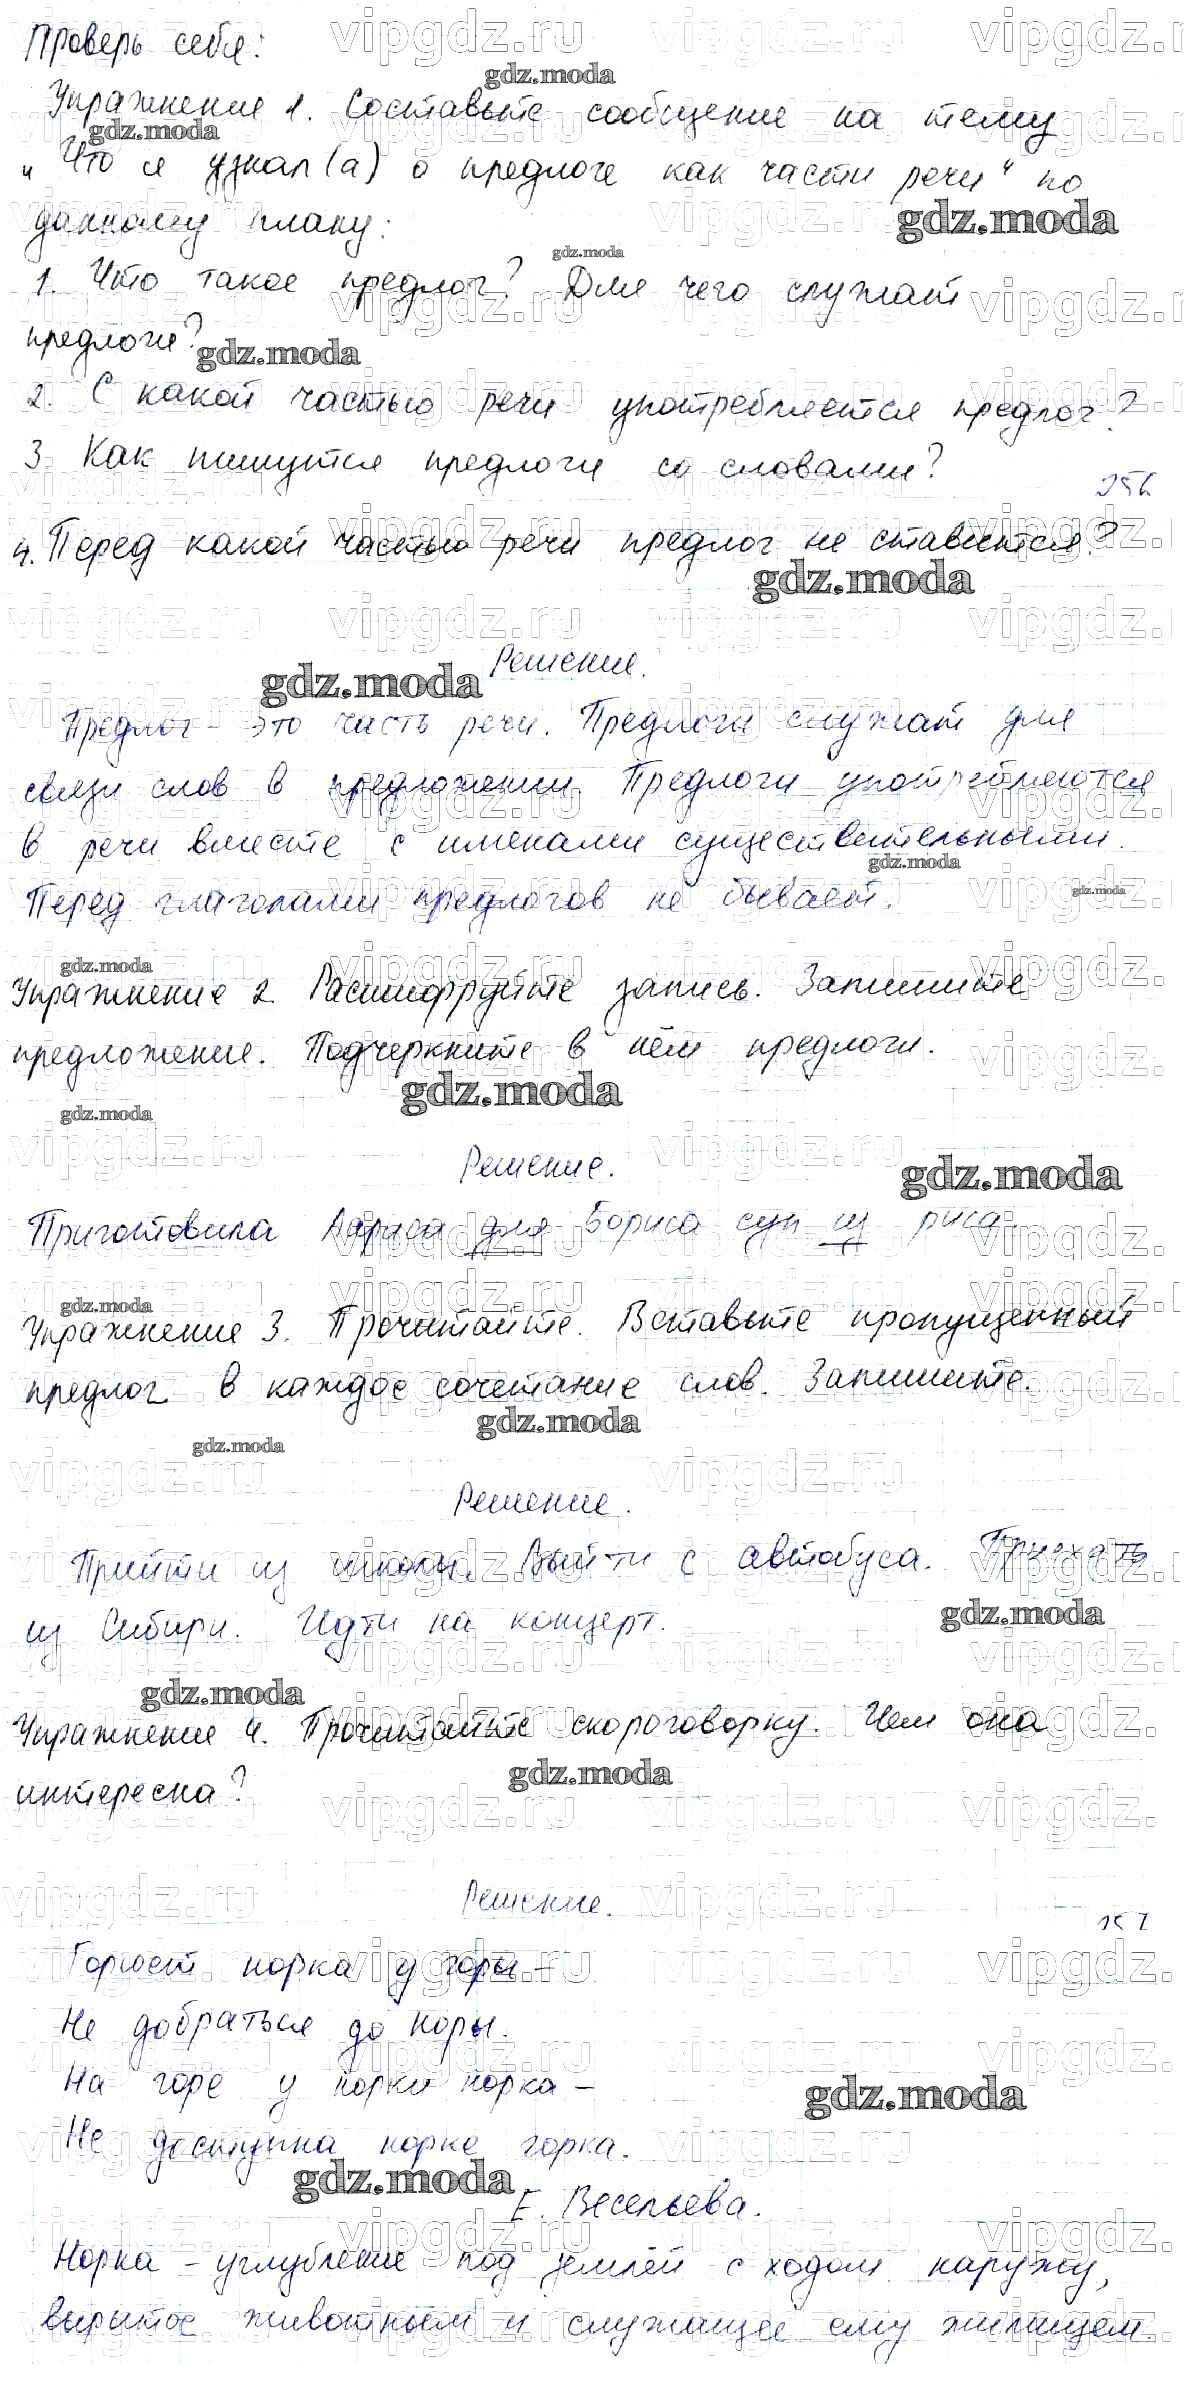 Проверь себя:
Упражнение 1. Составьте сообщение на тему
„Что я узнал(а) о предлоге как части речи“ по
данному плану:
1. Что такое предлог? Для чего служат
предлоги?
2. С какой частью речи употребляется предлог?
3. Как пишутся предлоги со словами?
156
4. Перед какой частью речи предлог не ставится?
Решение.
Предлог - это часть речи. Предлоги служат для
связи слов в предложении. Предлоги употребляются
в речи вместе с именами существительными.
Перед глаголами предлогов не бывает.
Упражнение 2. Расшифруйте запись. Запишите
предложение. Подчеркните в нём предлоги.
Решение.
Приготовила Лариса для Бориса суп из риса.
Упражнение 3. Прочитайте. Вставьте пропущенный
предлог в каждое сочетание слов. Запишите.
Решение.
Прийти из школы. Выйти с автобуса. Приехать
из Сибири. Идти на концерт.
Упражнение 4. Прочитайте скороговорку. Чем она
интересна?
Решение.
157
Горюет норка у горы –
Не добраться до норы.
На горе у норки норка –
Не доступна норке горка.
Е. Весельева.
Норка – углубление под землёй с ходом наружу,
вырытое животным и служащее ему жилищем.
vipgdz.ru
gdz.moda